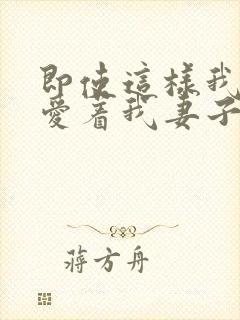 即使這樣我
愛着我妻子
蔣方舟